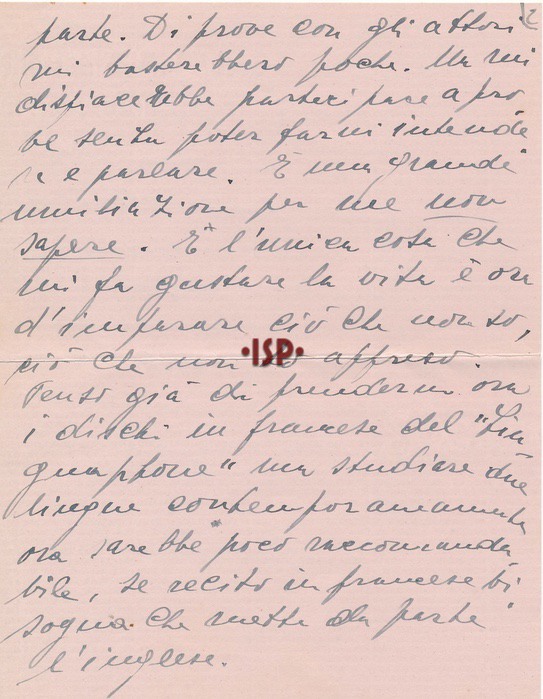 2
parte. Di prove con gli attori
mi basterebbero poche. Ma mi
dispiacerebbe partecipare a pro
ve senza poter farmi intende
re e parlare. È una grande
umiliazione per me non
sapere. È l'unica cosa che
mi fa gustare la vita è ora
d'imparare ciò che non so,
ciò che non ho appreso.
·ISP·
Penso già di prendermi ora
i dischi in francese del "Lin
guaphone" ma studiare due
lingue contemporaneamente
ora sarebbe poco raccomanda
bile, se recito in francese bi
sogna che metta da parte
l'inglese.